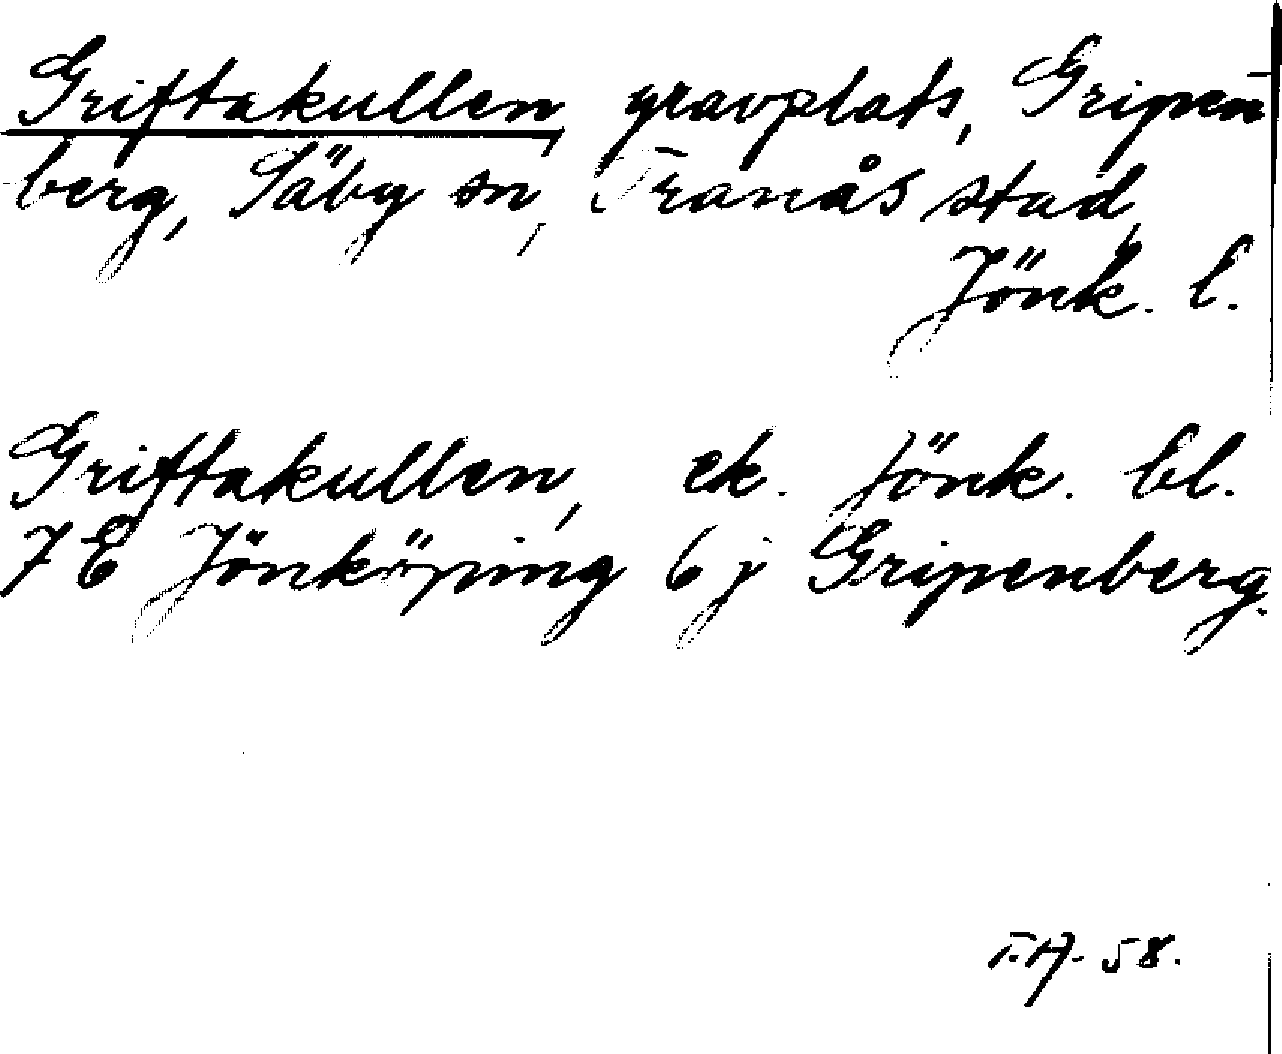 Griftakullen, gravplats, Gripen-
berg, Säby sn, Tranås stad,
Jönk. l.
Griftakullen, ek. Jönk. bl.
7 E Jönköping 6 j Gripenberg.
T.A. 58.